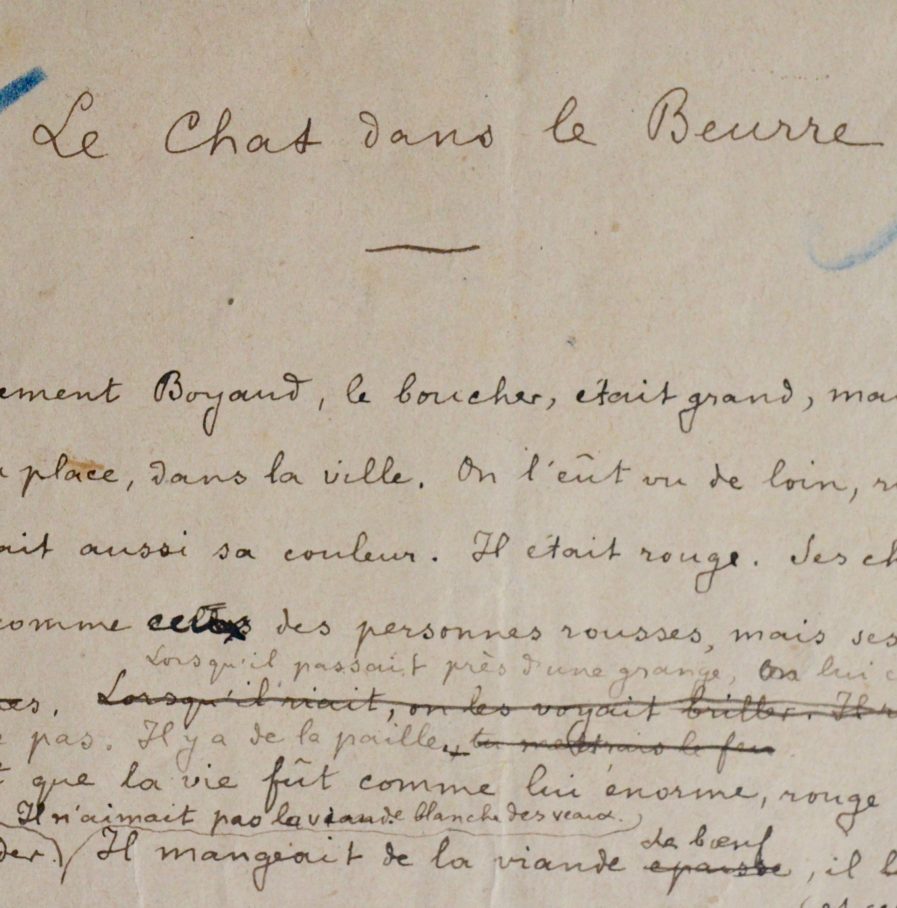 Le Chat dans le Beurre
ement Boyaud, le boucher, était grand, mai
place, dans la ville. On l'eût vu de loin,
ait aussi sa couleur. Il était rouge. Ses ch
comme celles des personnes rousses, mais ses
Lorsqu'il passait près d'une grange, on lui c
es. Lorsqu'il riait, on les voyait briller. Il r
pas. Il y a de la paille, tu mettrais le feu
que la vie fût comme lui énorme, rouge
Il n'aimait pas la viande blanche des veaux.
de bœuf
der. Il mangeait de la viande épaisse, il b